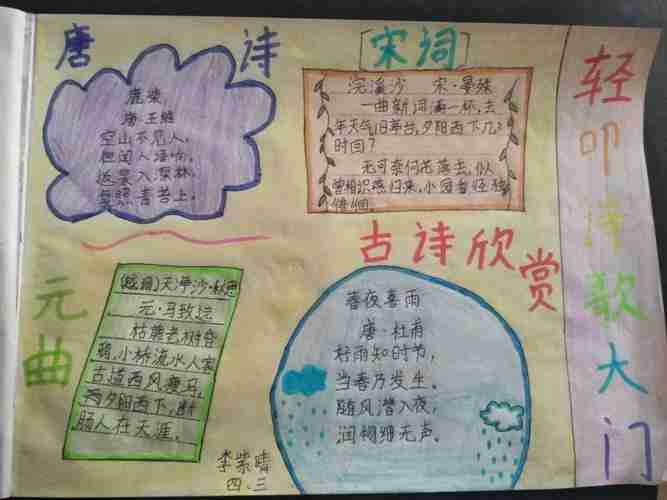 唐诗
鹿柴
唐·王维
空山不见人,
但闻人语响,
返景入深林,
复照青苔上。
[宋词]
浣溪沙 宋·晏殊
一曲新词酒一杯,去
年天气旧亭台,夕阳西下几
时回?
无可奈何花落去,似
曾相识燕归来,小园香径独
徘徊。
古诗欣赏
元曲
天净沙·秋思
元·马致远
枯藤老树昏
鸦,小桥流水人家
古道西风瘦马。
夕阳西下,断
肠人在天涯。
春夜喜雨
唐·杜甫
好雨知时节,
当春乃发生。
随风潜入夜,
润物细无声。
李紫晴
四.三
轻叩诗歌大门